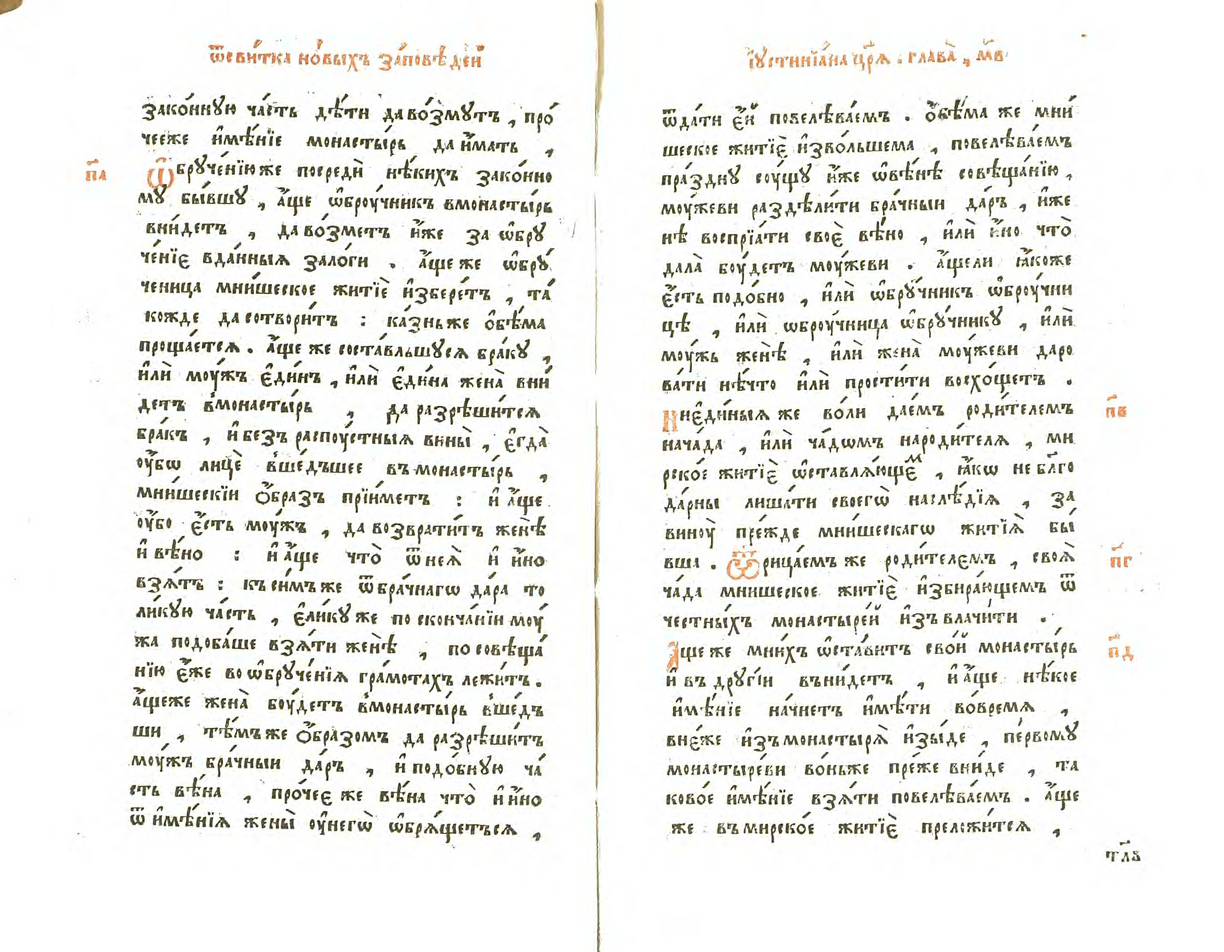 ѿсви́тка но́выхъ за́повѣдей
зако́нную ча́сть дѣ́ти даво́змутъ , про́
чееже и҆мѣ́нїе монасты́рь да и҆́мать ,
п҃а
Ѡ҆бруче́нїюже посредѝ нѣ́кихъ зако́нно
му бы́вшу , а҆́ще ѡ҆броу́чникъ вмонасты́рь
вни́детъ , даво́зметъ и҆́же за ѡ҆бру
че́нїе вда́нныѧ зало́ги . а҆́ще же ѡ҆бру́
ченица мни́шеское житїѐ и҆збере́тъ , та́
кожде да сотвори́тъ : ка́зньже ѻ҆бѣ́ма
проща́етсѧ . а҆́ще же соста́вльшусѧ бра́ку ,
и҆лѝ моу́жъ є҆ди́нъ , и҆лѝ є҆ди́на жена̀ вни́
детъ вмонасты́рь , да разрѣши́тсѧ
бра́къ , и҆ безъ распоу́стныѧ вины̀ , є҆гда̀
оу҆́бѡ лицѐ вше́дъшее въ монасты́рь ,
мни́шескїи ѻ҆́бразъ прїи́метъ : и҆ а҆́ще
оу҆́бо є҆́сть моу́жъ , да возврати́тъ женѣ̀
и҆ вѣ́но : и҆ а҆́ще что̀ ѿ неѧ̀ и҆ и҆́но
взѧ́тъ : къ си́мъ же ѿ бра́чнагѡ да́ра то
ли́кую ча́сть , є҆ли́ку же по сконча́нїи моу́
жа подоба́ше взѧ́ти женѣ̀ , по совѣща́
нїю є҆́же во ѡ҆бруче́нїѧ гра́мотахъ лежи́тъ .
а҆́щеже жена̀ боу́детъ вмонасты́рь вше́дъ
ши , тѣ́мъ же ѻ҆́бразомъ да разрѣши́тъ
моу́жъ бра́чныи да́ръ , и҆ подо́бную ча́
сть вѣ́на , про́чее же вѣ́на что̀ и҆ и҆́но
ѿ и҆мѣ́нїѧ жены̀ оу҆ негѡ̀ ѡ҆брѧ́щетьсѧ ,
і҆устинїа́на цр҃ѧ . глава̀ , м҃в
ѿда́ти є҆́й повелѣва́емъ . ѻ҆бѣ́ма же мни́
шеское житїѐ и҆зво́льшема , повелѣва́емъ
пра́здну соу́щу и҆́же ѡ҆ вѣ́нѣ совѣща́нїю ,
моу́жеви раздѣли́ти бра́чныи да́ръ , и҆́же
нѣ̀ воспрїа́ти своѐ вѣ́но , и҆лѝ и҆́но что̀
дала̀ боу́детъ моу́жеви . а҆́щели ꙗ҆́коже
є҆́сть подо́бно , и҆лѝ ѡ҆бру́чникъ ѡ҆броу́чни
цѣ , и҆лѝ ѡ҆броу́чница ѡ҆бру́чнику , и҆лѝ
моу́жь женѣ̀ , и҆лѝ жена̀ моу́жеви даро
ва́ти нѣ́что и҆лѝ прости́ти восхо́щетъ .
п҃в
Ниеди́ныѧ же во́ли дае́мъ роди́телемъ
нача́да , и҆лѝ ча́дѡмъ народи́телѧ , ми
рско́е житїѐ ѡ҆ставлѧ́ющеᷨ , ꙗ҆́кѡ не бл҃го
да́рны лиша́ти своегѡ̀ наслѣ́дїѧ , за
виноу̀ пре́жде мни́шескагѡ житїѧ̀ бы́
вша . Ѿрица́емъ же роди́телемъ , своѧ̀
п҃г
ча́да мни́шеское житїѐ и҆збира́ющемъ ѿ
честны́хъ монастыре́й и҆зъ влачи́ти .
А҆́ще же мни́хъ ѡ҆ста́витъ сво́й монасты́рь
п҃д
и҆ въ другі́и вни́детъ , и҆ а҆́ще нѣ́кое
и҆мѣ́нїе начне́тъ и҆мѣ́ти во́время ,
вне́же и҆зъ монастырѧ̀ и҆зы́де , пе́рвому
монастыре́ви во́ньже пре́же вни́де , та
ково́е и҆мѣ́нїе взѧ́ти повелѣва́емъ . а҆́ще
же въ мирско́е житїѐ прело́житсѧ ,
тл҃в